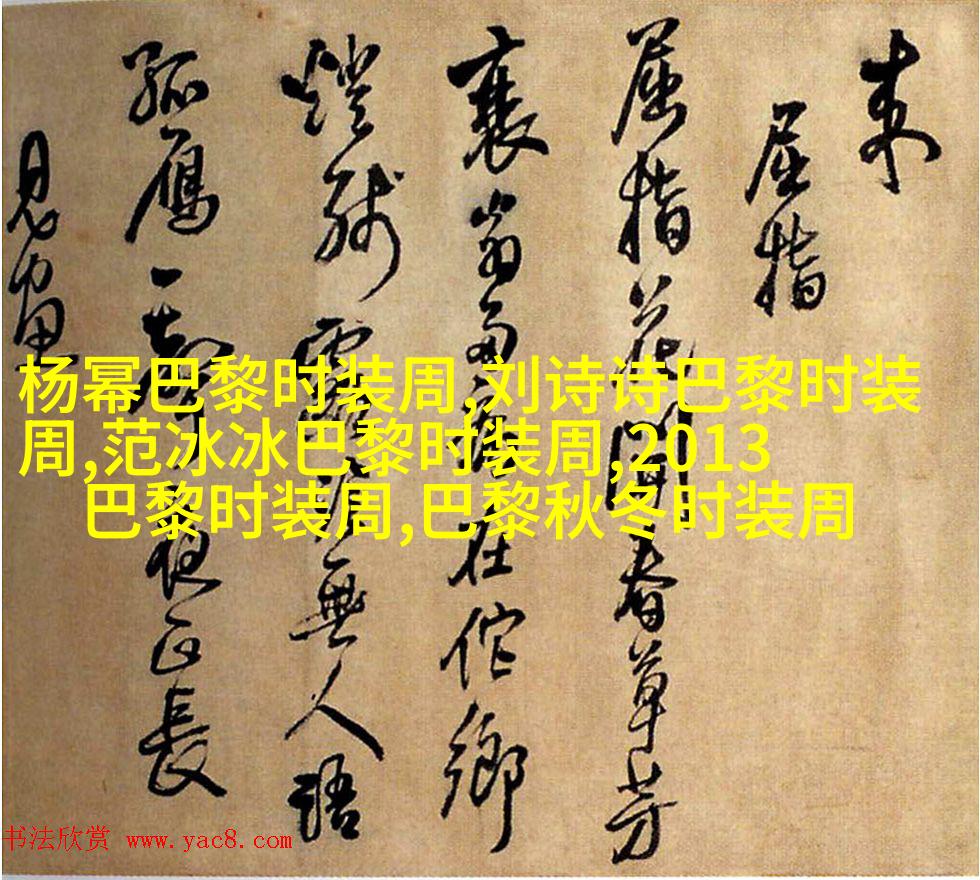 杨幂巴黎时装周,刘诗诗巴黎时装
周,范冰冰巴黎时装周,2013
巴黎时装周,巴黎秋冬时装周
屈指
屈指花開春草芳
衰翁多病在佗鄉
燈殘無人語
孤雁一聲夜正長
书法欣赏 www.yac8.com